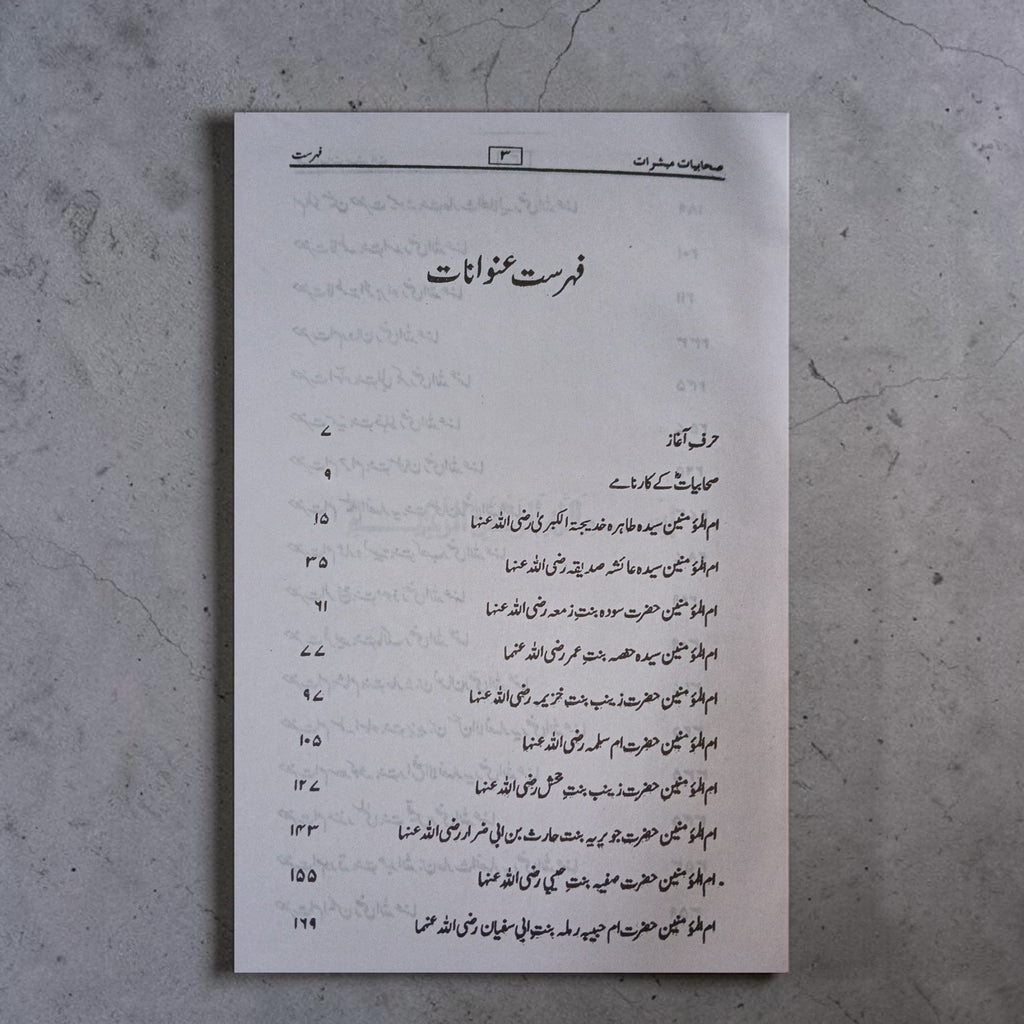 صحابیات مبشرات ۳ فہرست
فہرست عنوانات
حرفِ آغاز ۷
صحابیاتؓ کے کارنامے ۹
ام المؤمنین سیدہ طاہرہ خدیجۃ الکبریٰ رضی اللہ عنہا ۱۵
ام المؤمنین سیدہ عائشہ صدیقہ رضی اللہ عنہا ۳۵
ام المؤمنین حضرت سودہ بنتِ زمعہ رضی اللہ عنہا ۶۱
ام المؤمنین سیدہ حفصہ بنتِ عمر رضی اللہ عنہما ۷۷
ام المؤمنین حضرت زینب بنتِ خزیمہ رضی اللہ عنہا ۹۷
ام المؤمنین حضرت ام سلمہ رضی اللہ عنہا ۱۰۵
ام المؤمنین حضرت زینب بنتِ جحش رضی اللہ عنہا ۱۲۷
ام المؤمنین حضرت جویریہ بنت حارث بن ابی ضرار رضی اللہ عنہا ۱۴۳
ام المؤمنین حضرت صفیہ بنتِ حیی رضی اللہ عنہا ۱۵۵
ام المؤمنین حضرت ام حبیبہ رملہ بنتِ ابی سفیان رضی اللہ عنہما ۱۶۹